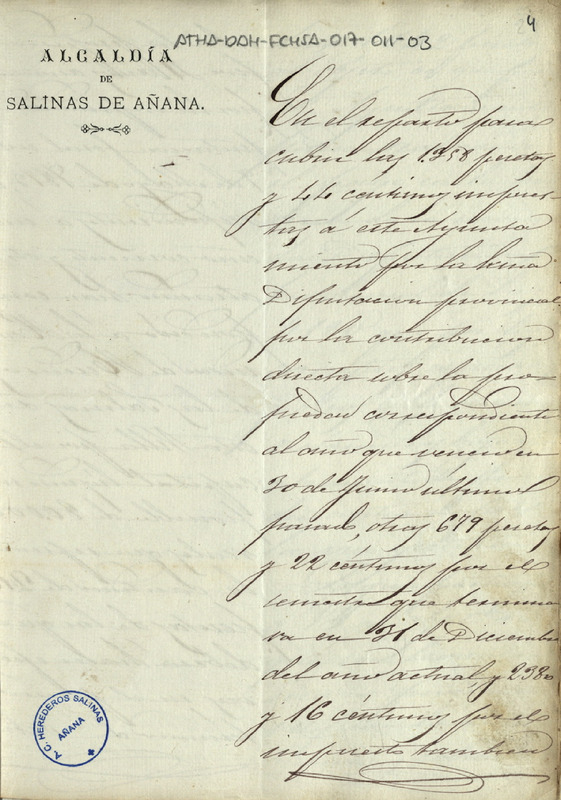 4
ATHA-DAH-FCHSA-017-011-03
ALCALDÍA
DE
SALINAS DE AÑANA.
En el reparto para
cubrir las 1.358 pesetas
y 44 céntimos impues-
tas á este Ayunta
miento por la Exma
Diputacion provincial
por la contribucion
directa sobre la pro-
piedad correspondiente
al año que venció en
30 de Junio último
pasado, otras 679 pesetas
y 22 céntimos por el
semestre que termina
rá en 31 de Diciembre
del año actual y 2380
y 16 céntimos por el
impuesto tambien
A. C. HEREDEROS SALINAS
AÑANA